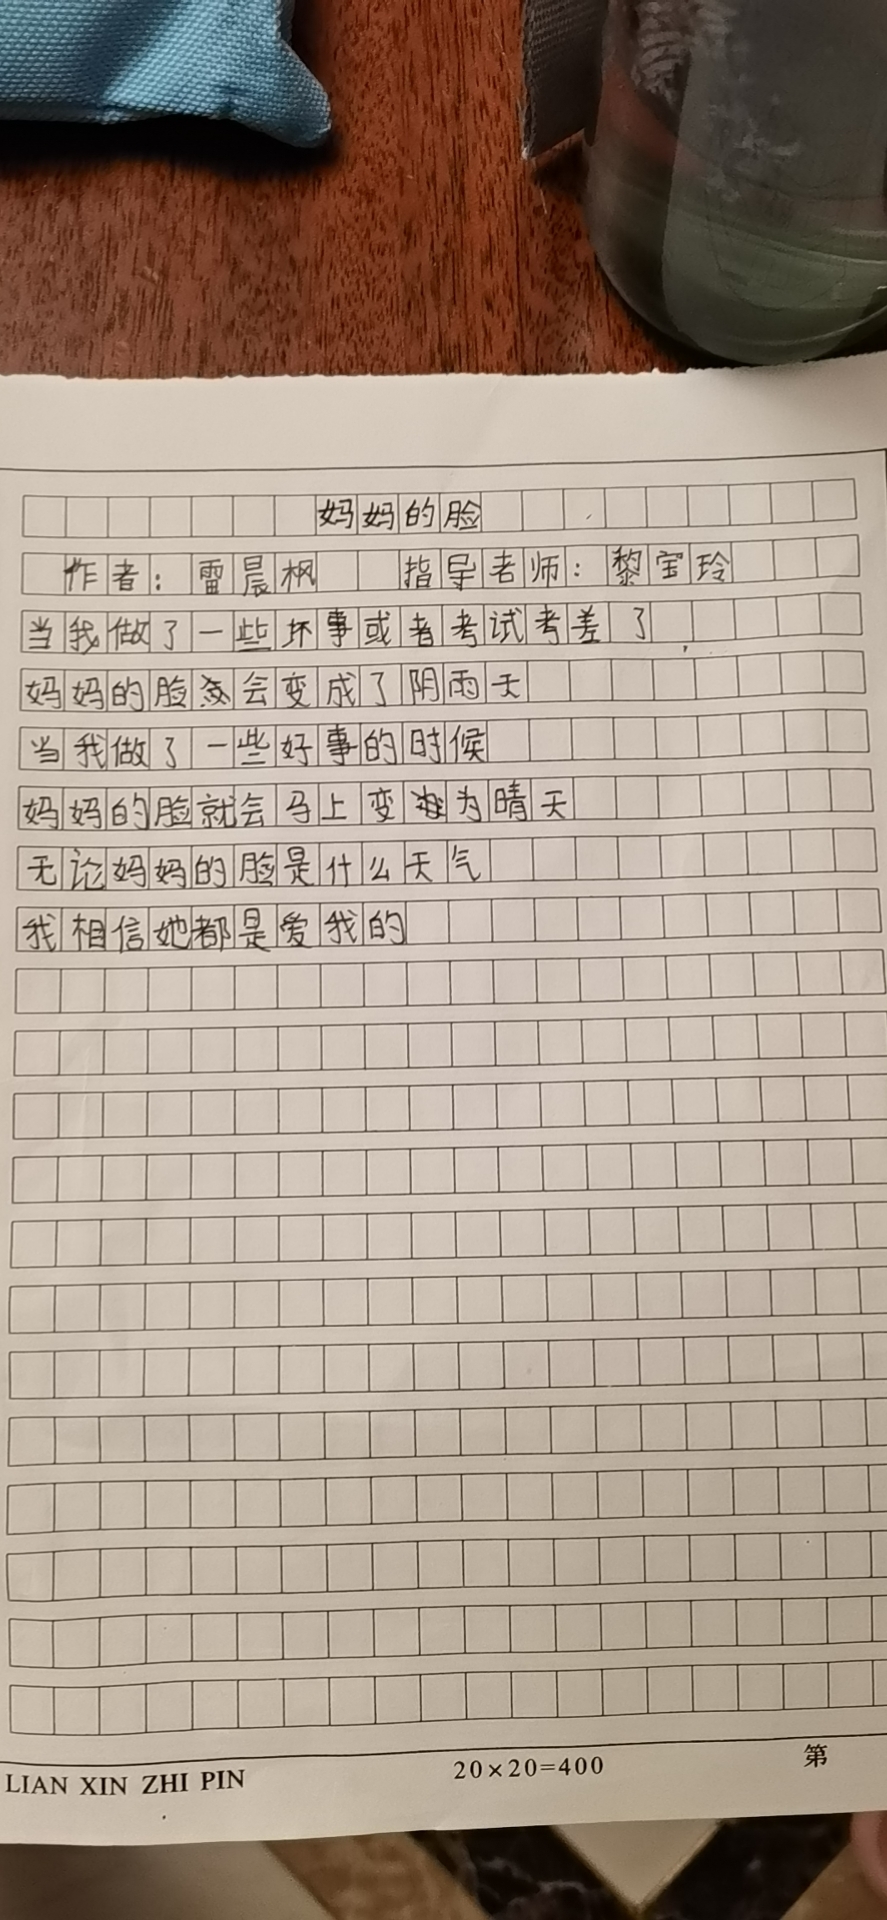 妈妈的脸
作者：雷晨枫 指导老师：黎宝玲
当我做了一些坏事或者考试考差了
妈妈的脸会变成了阴雨天
当我做了一些好事的时候
妈妈的脸就会马上变为晴天
无论妈妈的脸是什么天气
我相信她都是爱我的
LIAN XIN ZHI PIN 20×20=400 第